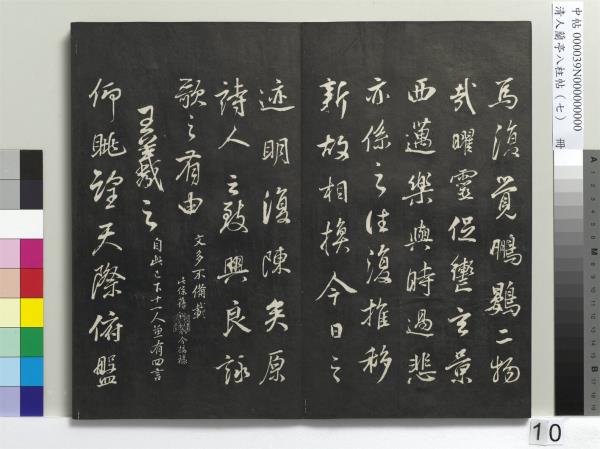 焉復覺鵬鷃二物
哉曜靈促轡玄景
西邁樂與時過悲
亦係之往復推移
新故相換今日之
迹明復陳矣原
詩人之致興良詠
歌之有由
文多不備載
王羲之
自此已下十一人並有四言
仰眺望天際俯盤
中帖 000039N000000000
清人蘭亭八柱帖（七） 冊
10